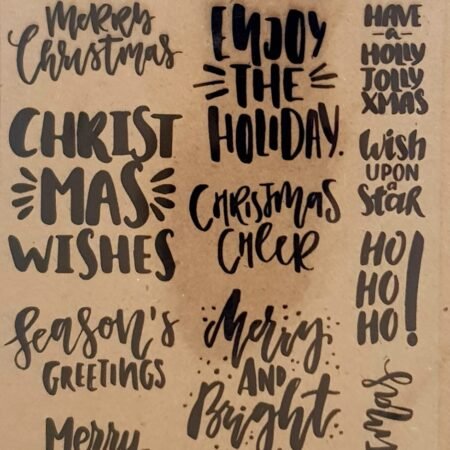 Merry
Christmas
CHRIST
MAS
WISHES
Season's
GREETINGS
Merry
ENJOY
THE
HOLIDAY.
CHRISTMAS
CHEER
Merry
AND
Bright
HAVE
a
HOLLY
JOLLY
XMAS
Wish
UPON
a
Star
HO
HO
HO!